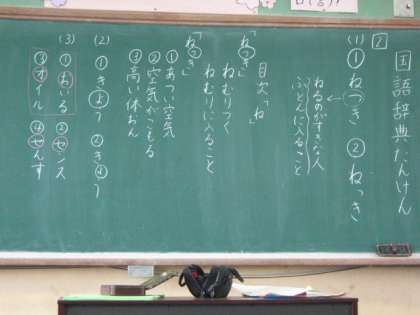 国語辞典たんけん
2
(1) ①ねつき ②ねっき
ねるのがすきな人
ふとんに入ること
目次「ね」
「ねつき」
ねむりつく
ねむりに入ること
「ねっき」
①あつい空気
②空気がこもる
③高い体おん
(2) ①きよう ②きょう
(3) ①おいる ②センス
③オイル ④せんす